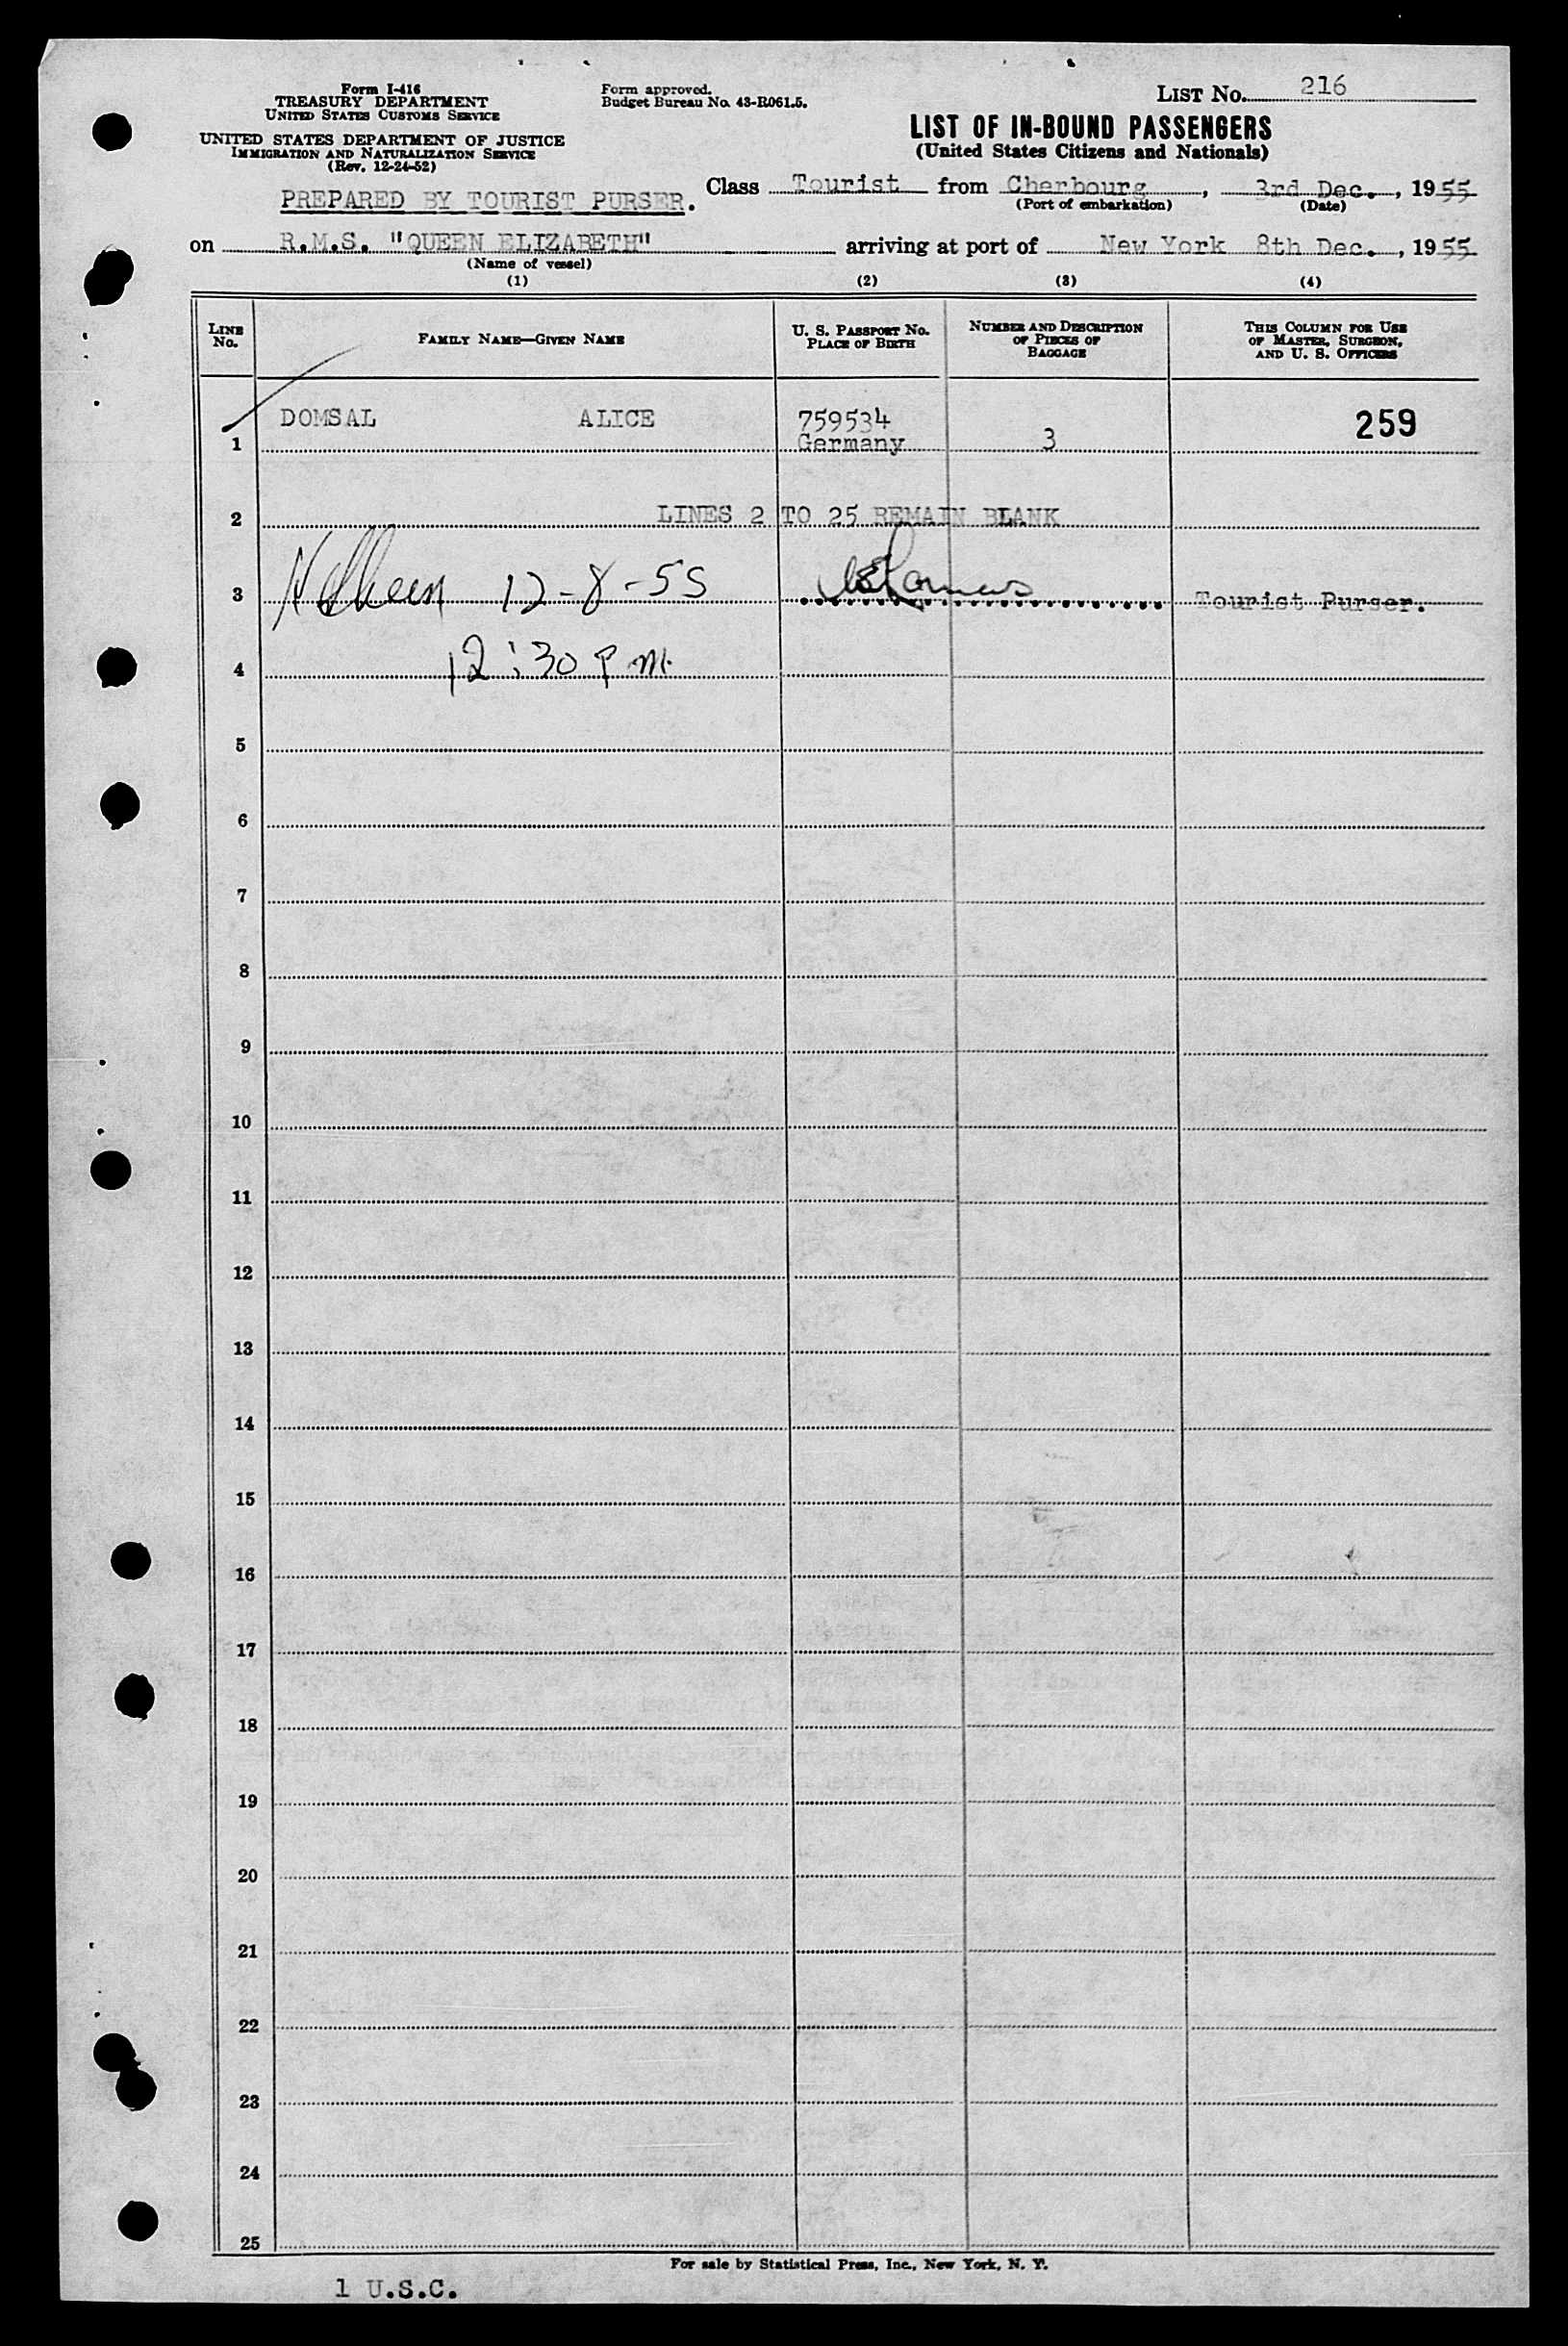 Form I-416
TREASURY DEPARTMENT
UNITED STATES CUSTOMS SERVICE
UNITED STATES DEPARTMENT OF JUSTICE
IMMIGRATION AND NATURALIZATION SERVICE
(Rev. 12-24-52)
Form approved.
Budget Bureau No. 43-R061.5.
LIST No. 216
LIST OF IN-BOUND PASSENGERS
(United States Citizens and Nationals)
PREPARED BY TOURIST PURSER.
Class Tourist from Cherbourg, 3rd Dec., 1955
(Port of embarkation) (Date)
on R.M.S. "QUEEN ELIZABETH" arriving at port of New York 8th Dec., 1955
(Name of vessel)
(1) (2) (3) (4)
LINE No. FAMILY NAME—GIVEN NAME U. S. PASSPORT No. PLACE OF BIRTH NUMBER AND DESCRIPTION OF PIECES OF BAGGAGE THIS COLUMN FOR USE OF MASTER, SURGEON, AND U. S. OFFICERS
1 DOMSAL ALICE 759534 Germany 3 259
2 LINES 2 TO 25 REMAIN BLANK
3 12-8-55 Tourist Purser.
4 12:30 pm.
5
6
7
8
9
10
11
12
13
14
15
16
17
18
19
20
21
22
23
24
25
For sale by Statistical Press, Inc., New York, N. Y.
1 U.S.C.